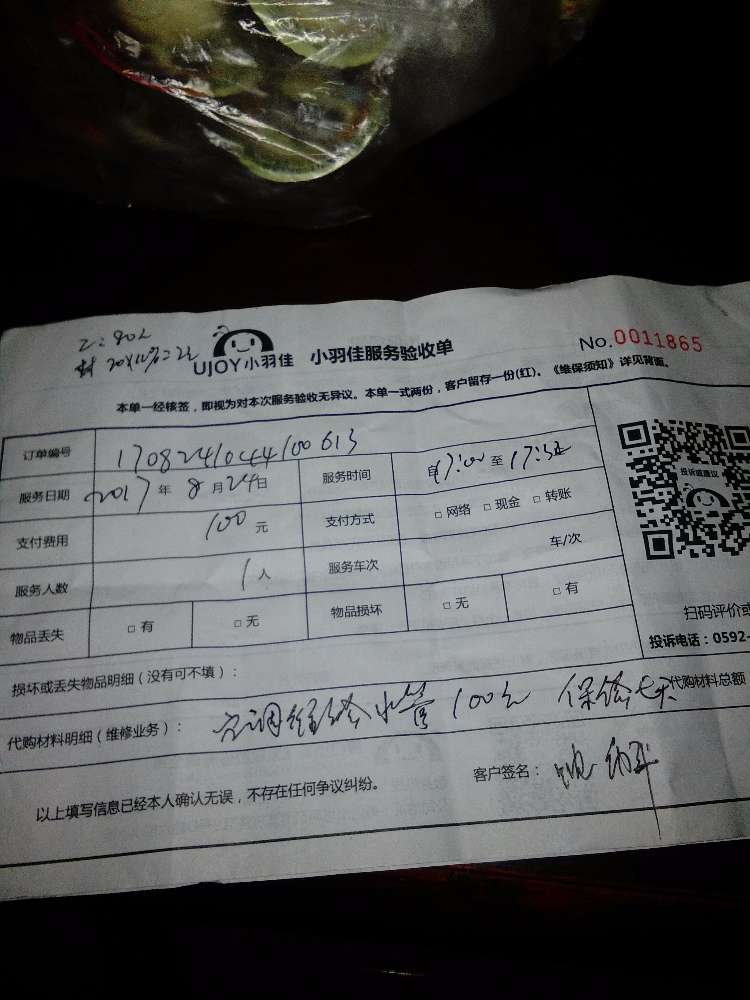 UJOY小羽佳 小羽佳服务验收单 No.0011865
本单一经核签，即视为对本次服务验收无异议。本单一式两份，客户留存一份(红)。《维保须知》详见背面。
订单编号 170824104400613
服务日期 2017年8月24日 服务时间 17:00至17:32
投诉或建议
支付费用 100元 支付方式 □网络 □现金 □转账
服务人数 1人 服务车次 车/次
物品丢失 □有 □无 物品损坏 □无 □有
扫码评价或
投诉电话：0592-
损坏或丢失物品明细（没有可不填）：
代购材料明细（维修业务）： 空调 水管100元 保修七天 代购材料总额
以上填写信息已经本人确认无误，不存在任何争议纠纷。 客户签名：